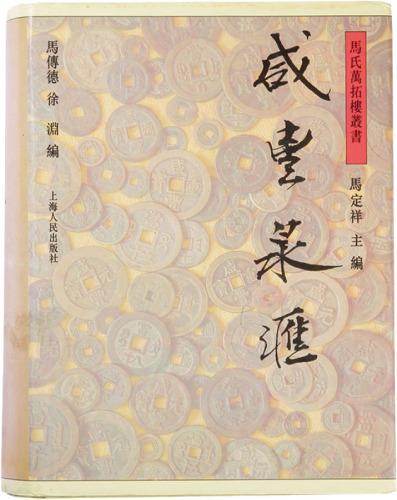 馬氏萬拓樓叢書
馬定祥 主編
咸豐泉滙
馬傳德 徐淵 編
上海人民出版社